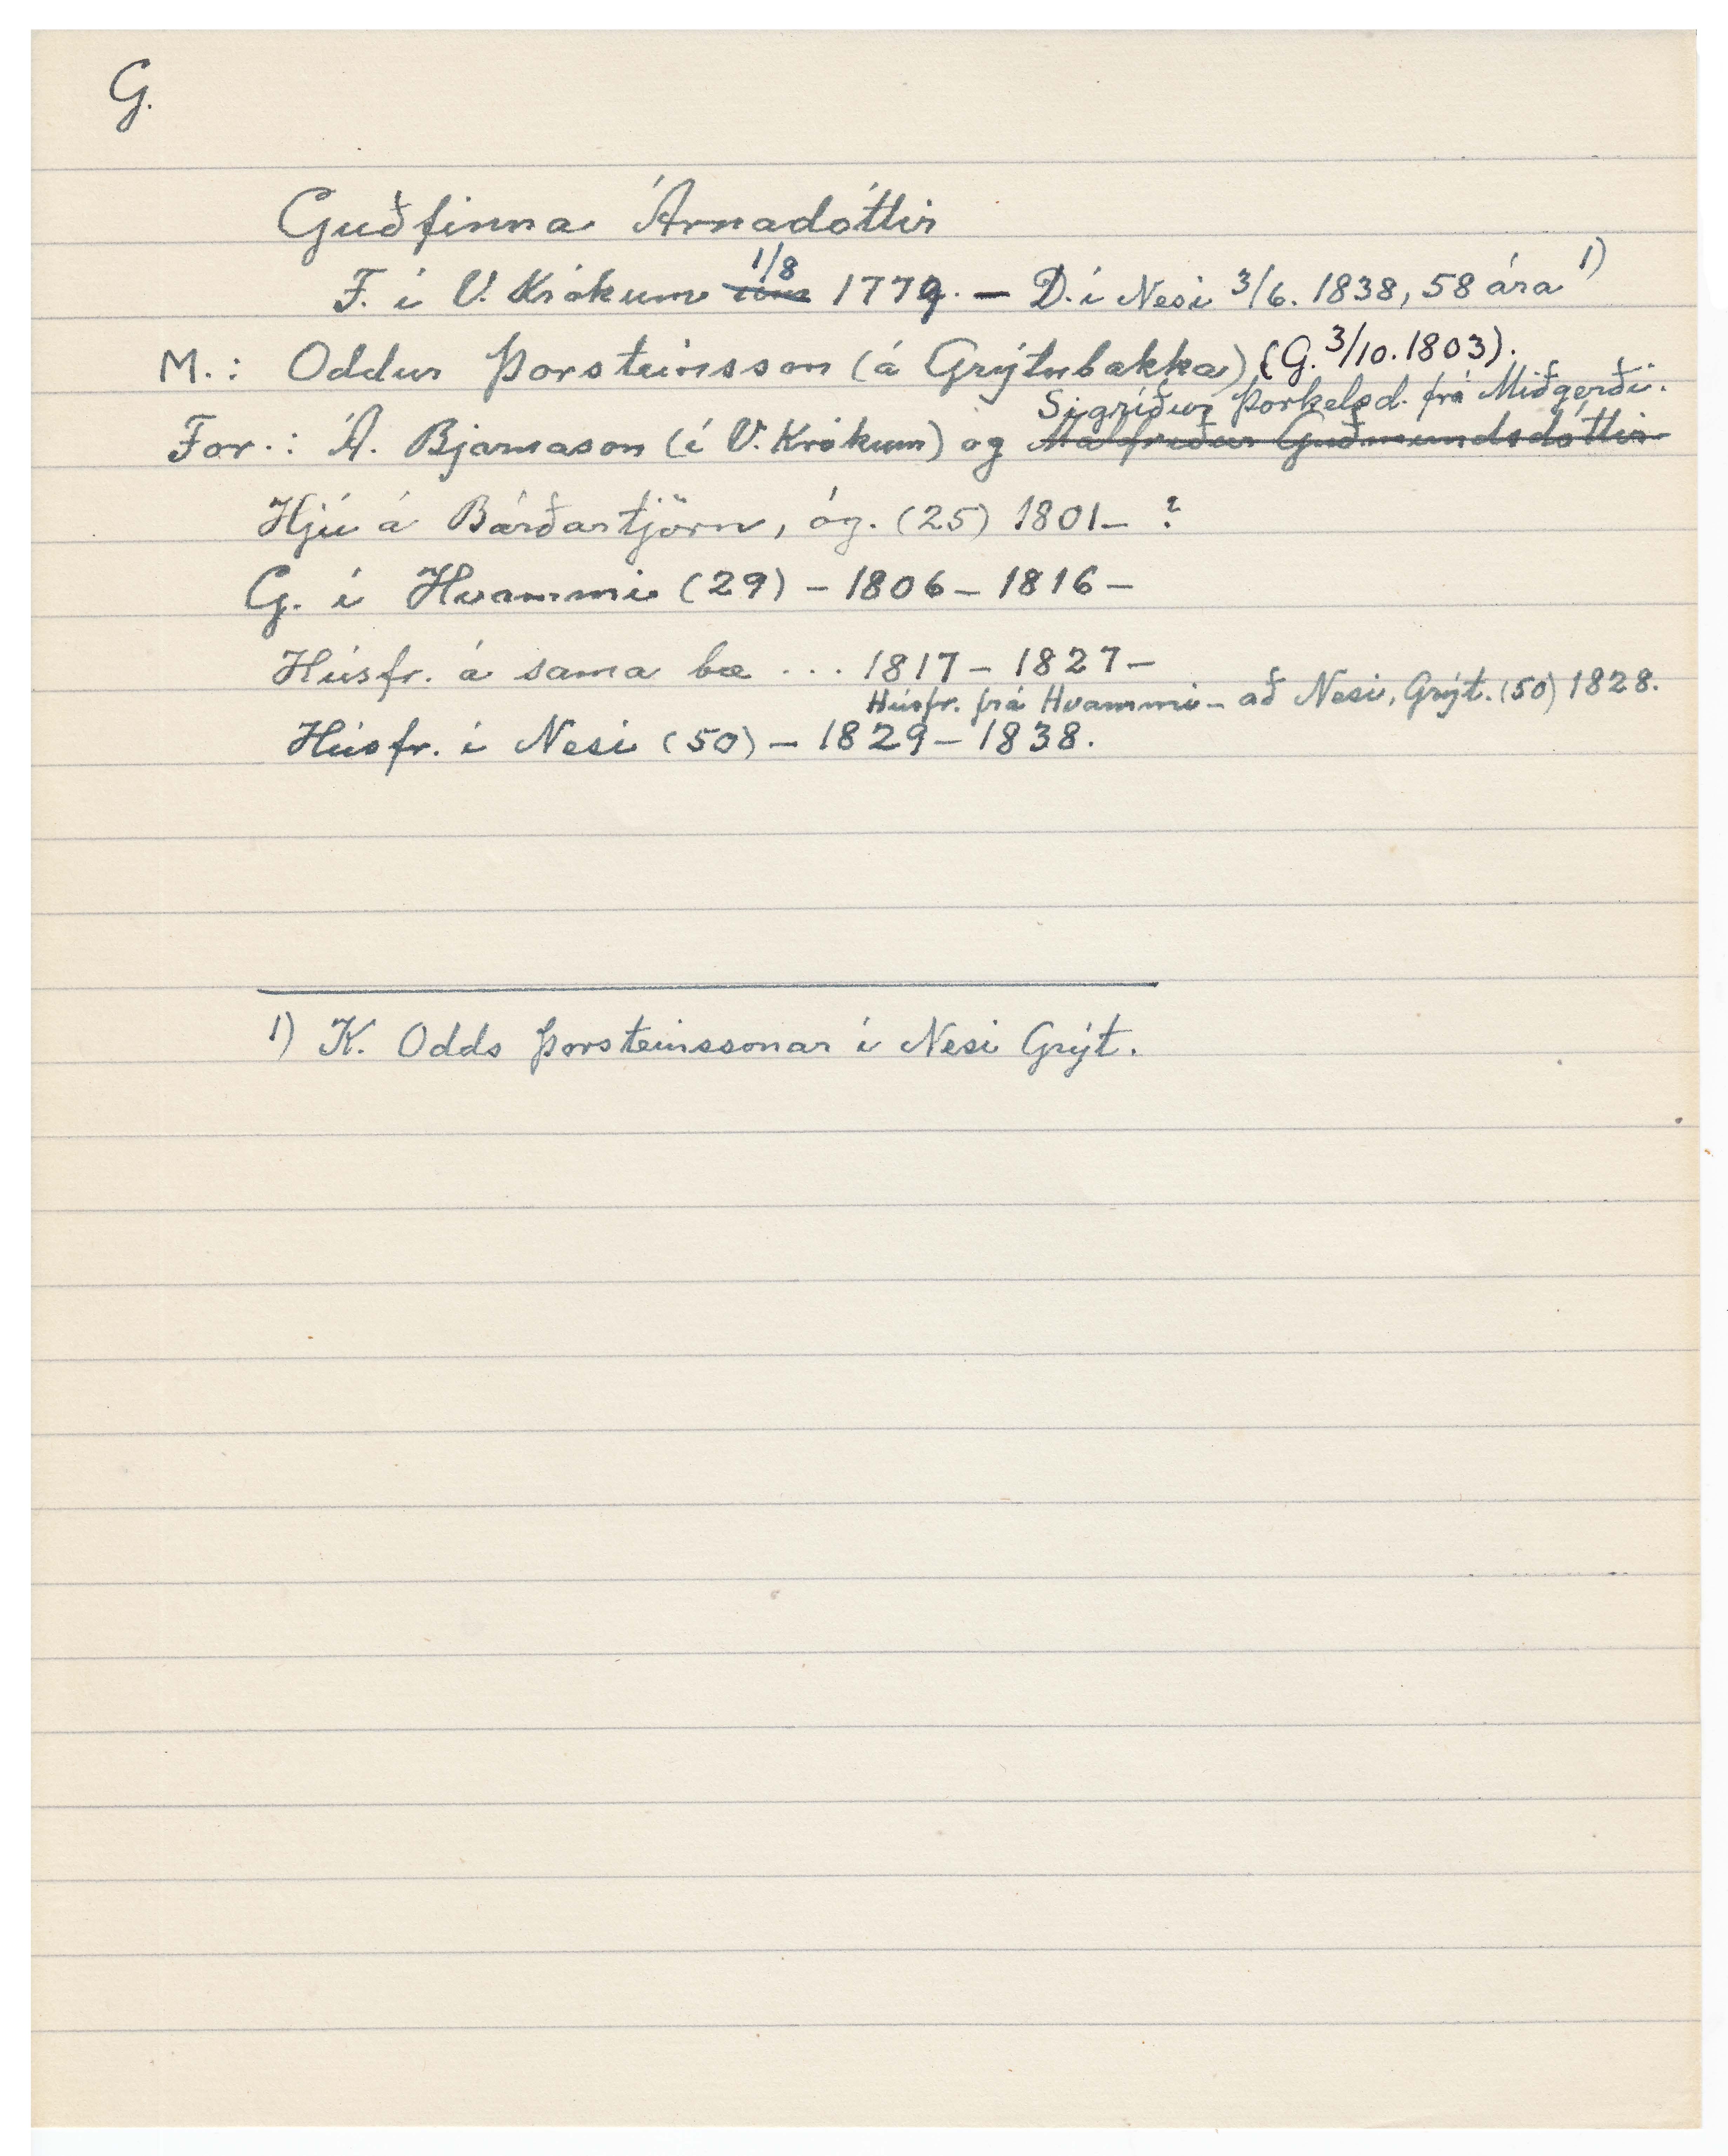 G.
Guðfinna Árnadóttir
F. í V. Krókum 1/8 1779. — D. í Nesi 3/6. 1838, 58 ára 1)
M.: Oddur Þorsteinsson (á Grýtubakka) (G. 3/10. 1803).
Sigríður Þorkelsd. frá Miðgerði.
For.: Á. Bjarnason (í V. Krókum) og Málfríður Guðmundsdóttir
Hjú á Bárðartjörn, óg. (25) 1801 – ?
G. í Hvammi (29) – 1806 – 1816 –
Húsfr. á sama bæ ... 1817 – 1827 –
Húsfr. frá Hvammi – að Nesi, Grýt. (50) 1828.
Húsfr. í Nesi (50) – 1829 – 1838.
1) K. Odds Þorsteinssonar í Nesi Grýt.